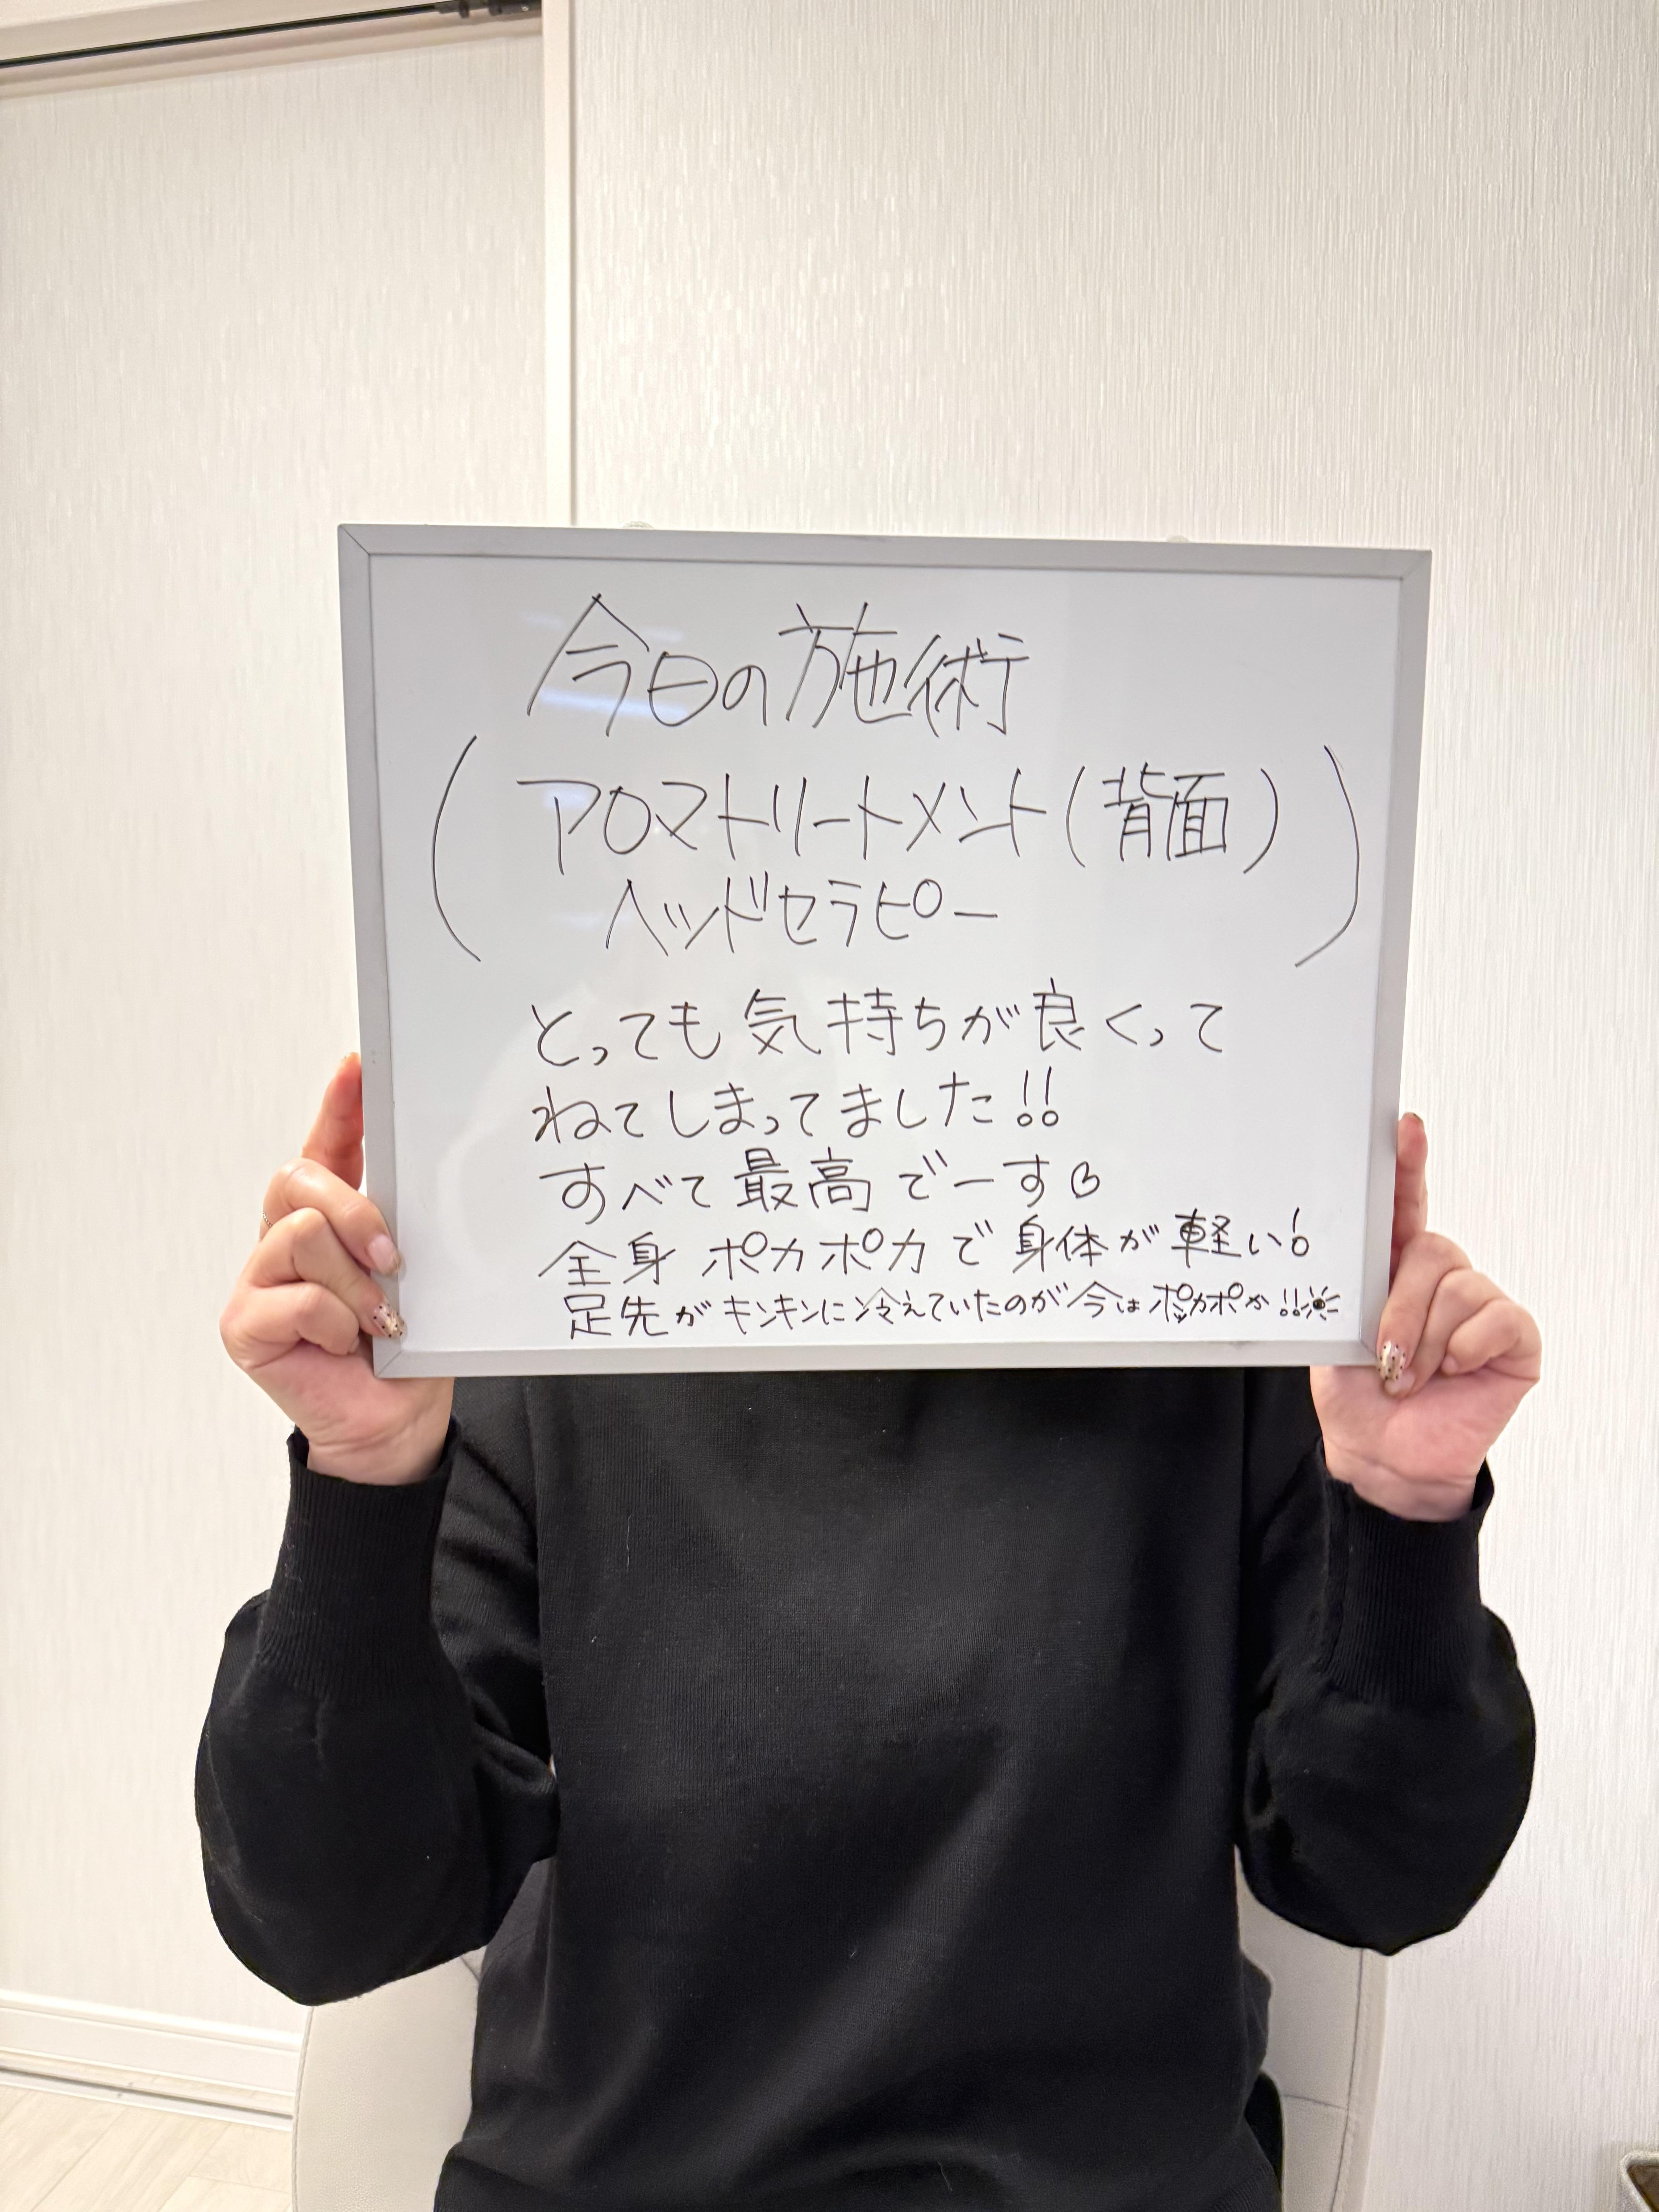 今日の施術
(アロマトリートメント(背面)
ヘッドセラピー)
とっても気持ちが良くって
ねてしまってました!!
すべて最高でーす♡
全身ポカポカで身体が軽い!
足先がキンキンに冷えていたのが今はポカポカ!!☀